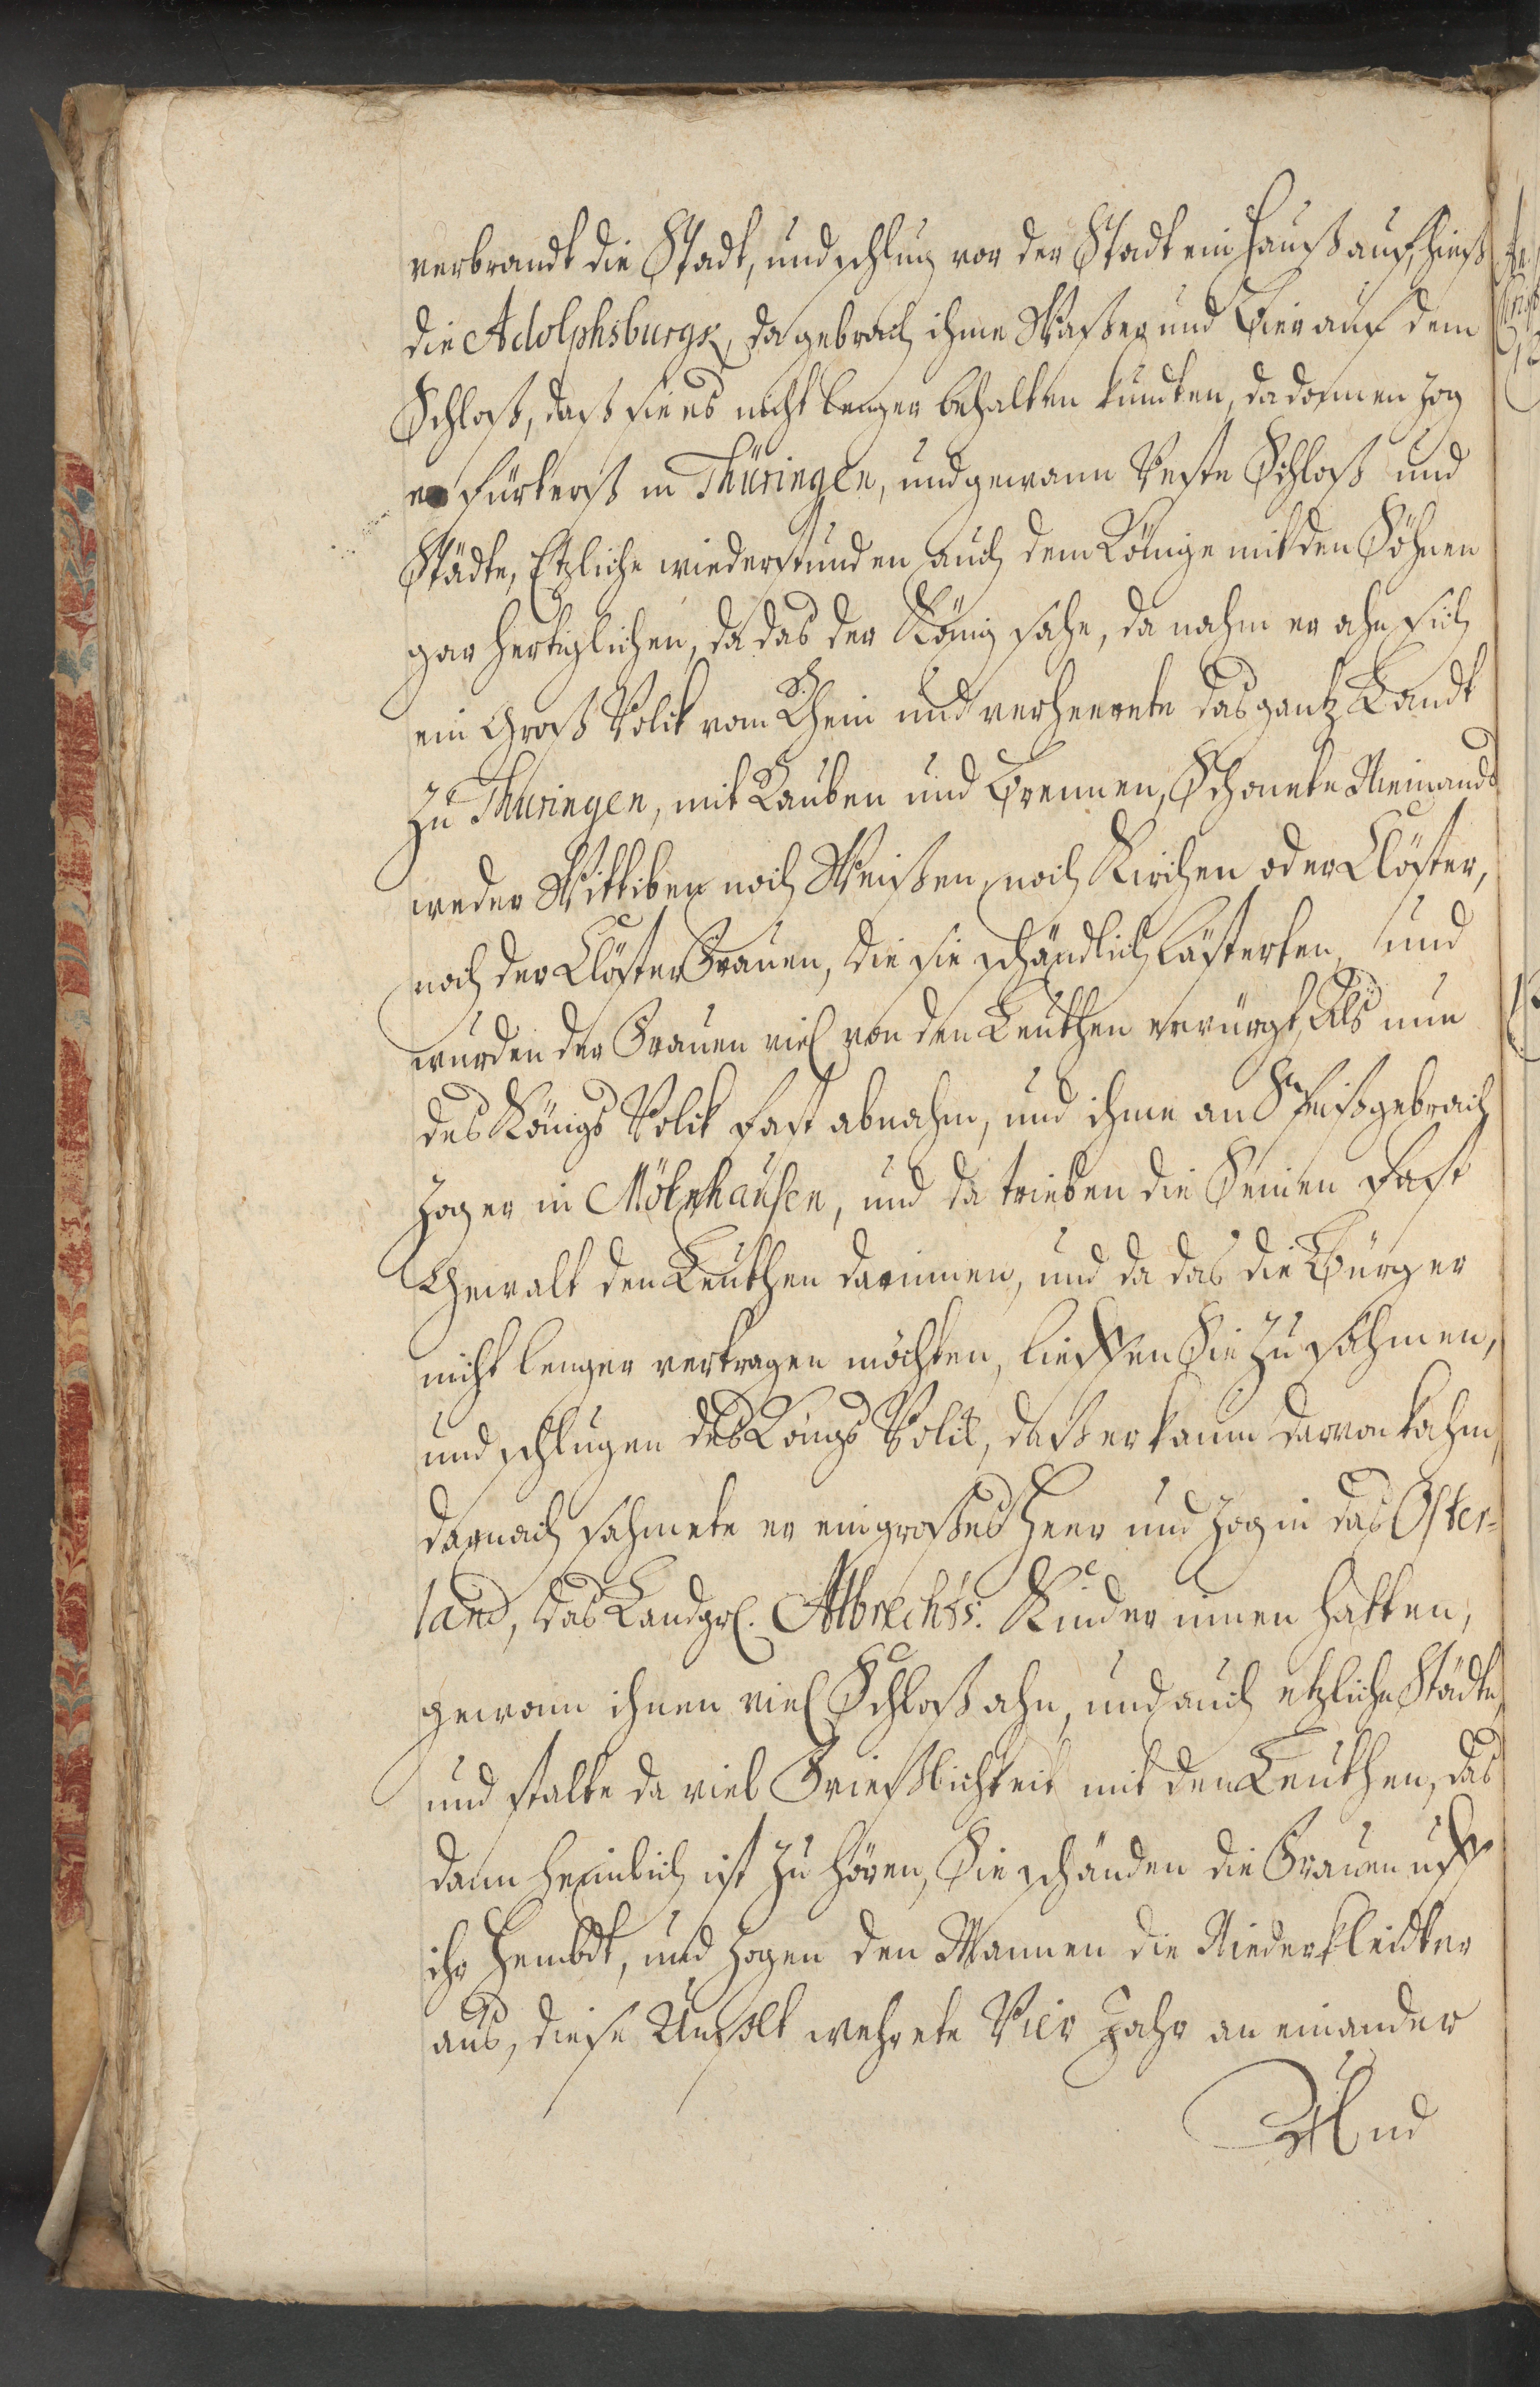 verbrandt die Stadt, und schlug vor der Stadt ein Hauß auf, hieß
die Adolphsburgk, da gebrach ihme Waßer und Bier auf dem
Schloß, daß sie es nicht lenger behalten kundten, da dannen zog
er fürterst in Thüringen, und gewann Veste Schloß und
Städte, Etzliche wiederstunden auch dem Könige mit den Söhnen
gar hertiglichen, da das der König sahe, da nahm er ahn sich
ein Groß Volck vom Rhein und verheerete das gantz Landt
zu Thuringen, mit Rauben und Brennen, Schonete Niemands
weder Wittiben noch Weisen, noch Kirchen oder Clöster,
noch der Clöster Frauen, die sie schändlich lästerten, und
wurden der Frauen viel von den Leuthen erwürgt, Als nun
des Königs Volck fast abnahm, und ihme an Speiß gebrach
zog er in Mölnhausen, und da trieben die Seinen fast
Gewalt den Leuthen darinnen, und da das die Bürger
nicht lenger vertragen möchten, lieffen Sie zusahmen,
und schlugen des Königs Volck, daß er kaum darvon kahm,
darnach sahmete er ein großes Heer und zog in das Oster-
land, das Landgr. Albrechts. Kinder innen hatten,
gewann ihnen viel Schloß ahn, und auch etzliche Städte,
und stalte da viel Grießlichkeit mit den Leuthen, das
dann heimlich ist zu hören, Sie schänden die Frauen uff
ihr Hembdt, und zogen den Mannen die Niederkleidter
aus, diese Unfolt wehrete Vier Jahr an einander
Und